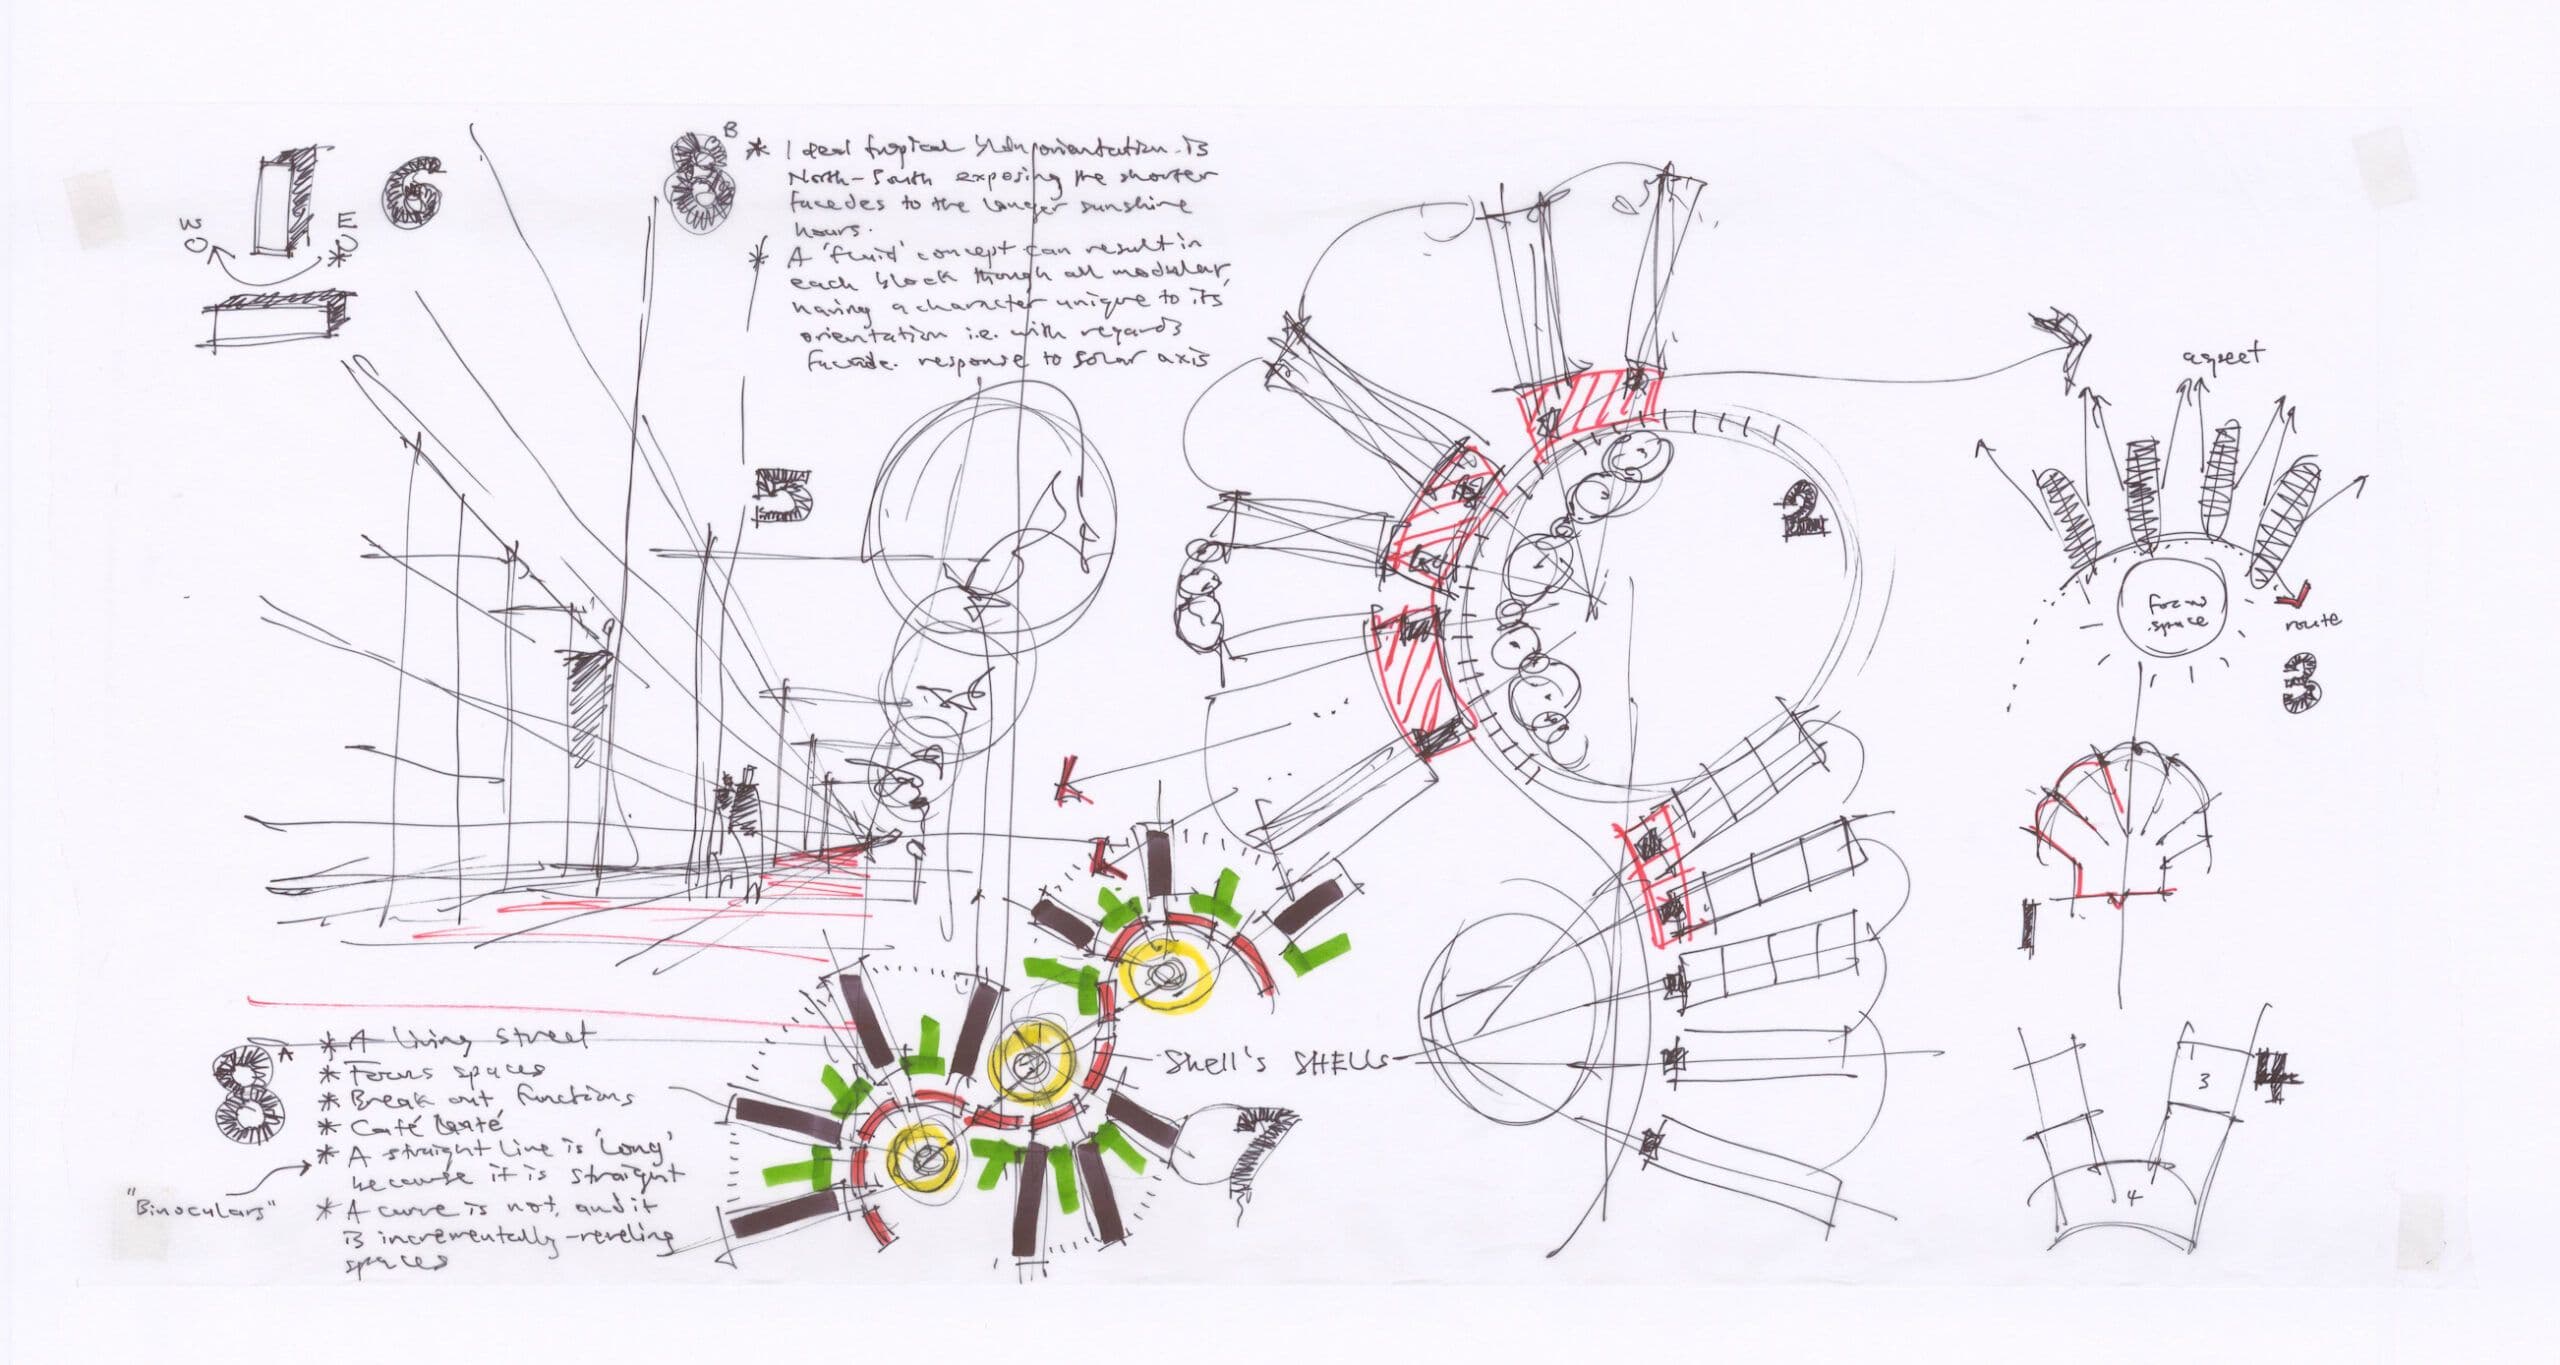 6
W
E
8 B
* Ideal tropical bldg orientation is
North-South exposing the shorter
facades to the longer sunshine
hours.
* A 'fluid' concept can result in
each block though all modular,
having a character unique to its
orientation i.e. with regards
facade response to solar axis
5
2
aspect
focus
space
route
3
1
Shell's SHELLs
7
3
4
4
8 A
* A living street
* Focus spaces
* Break out functions
* Café
* A straight line is 'long'
because it is straight
"Binoculars"
* A curve is not, and it
is incrementally-reveling
spaces